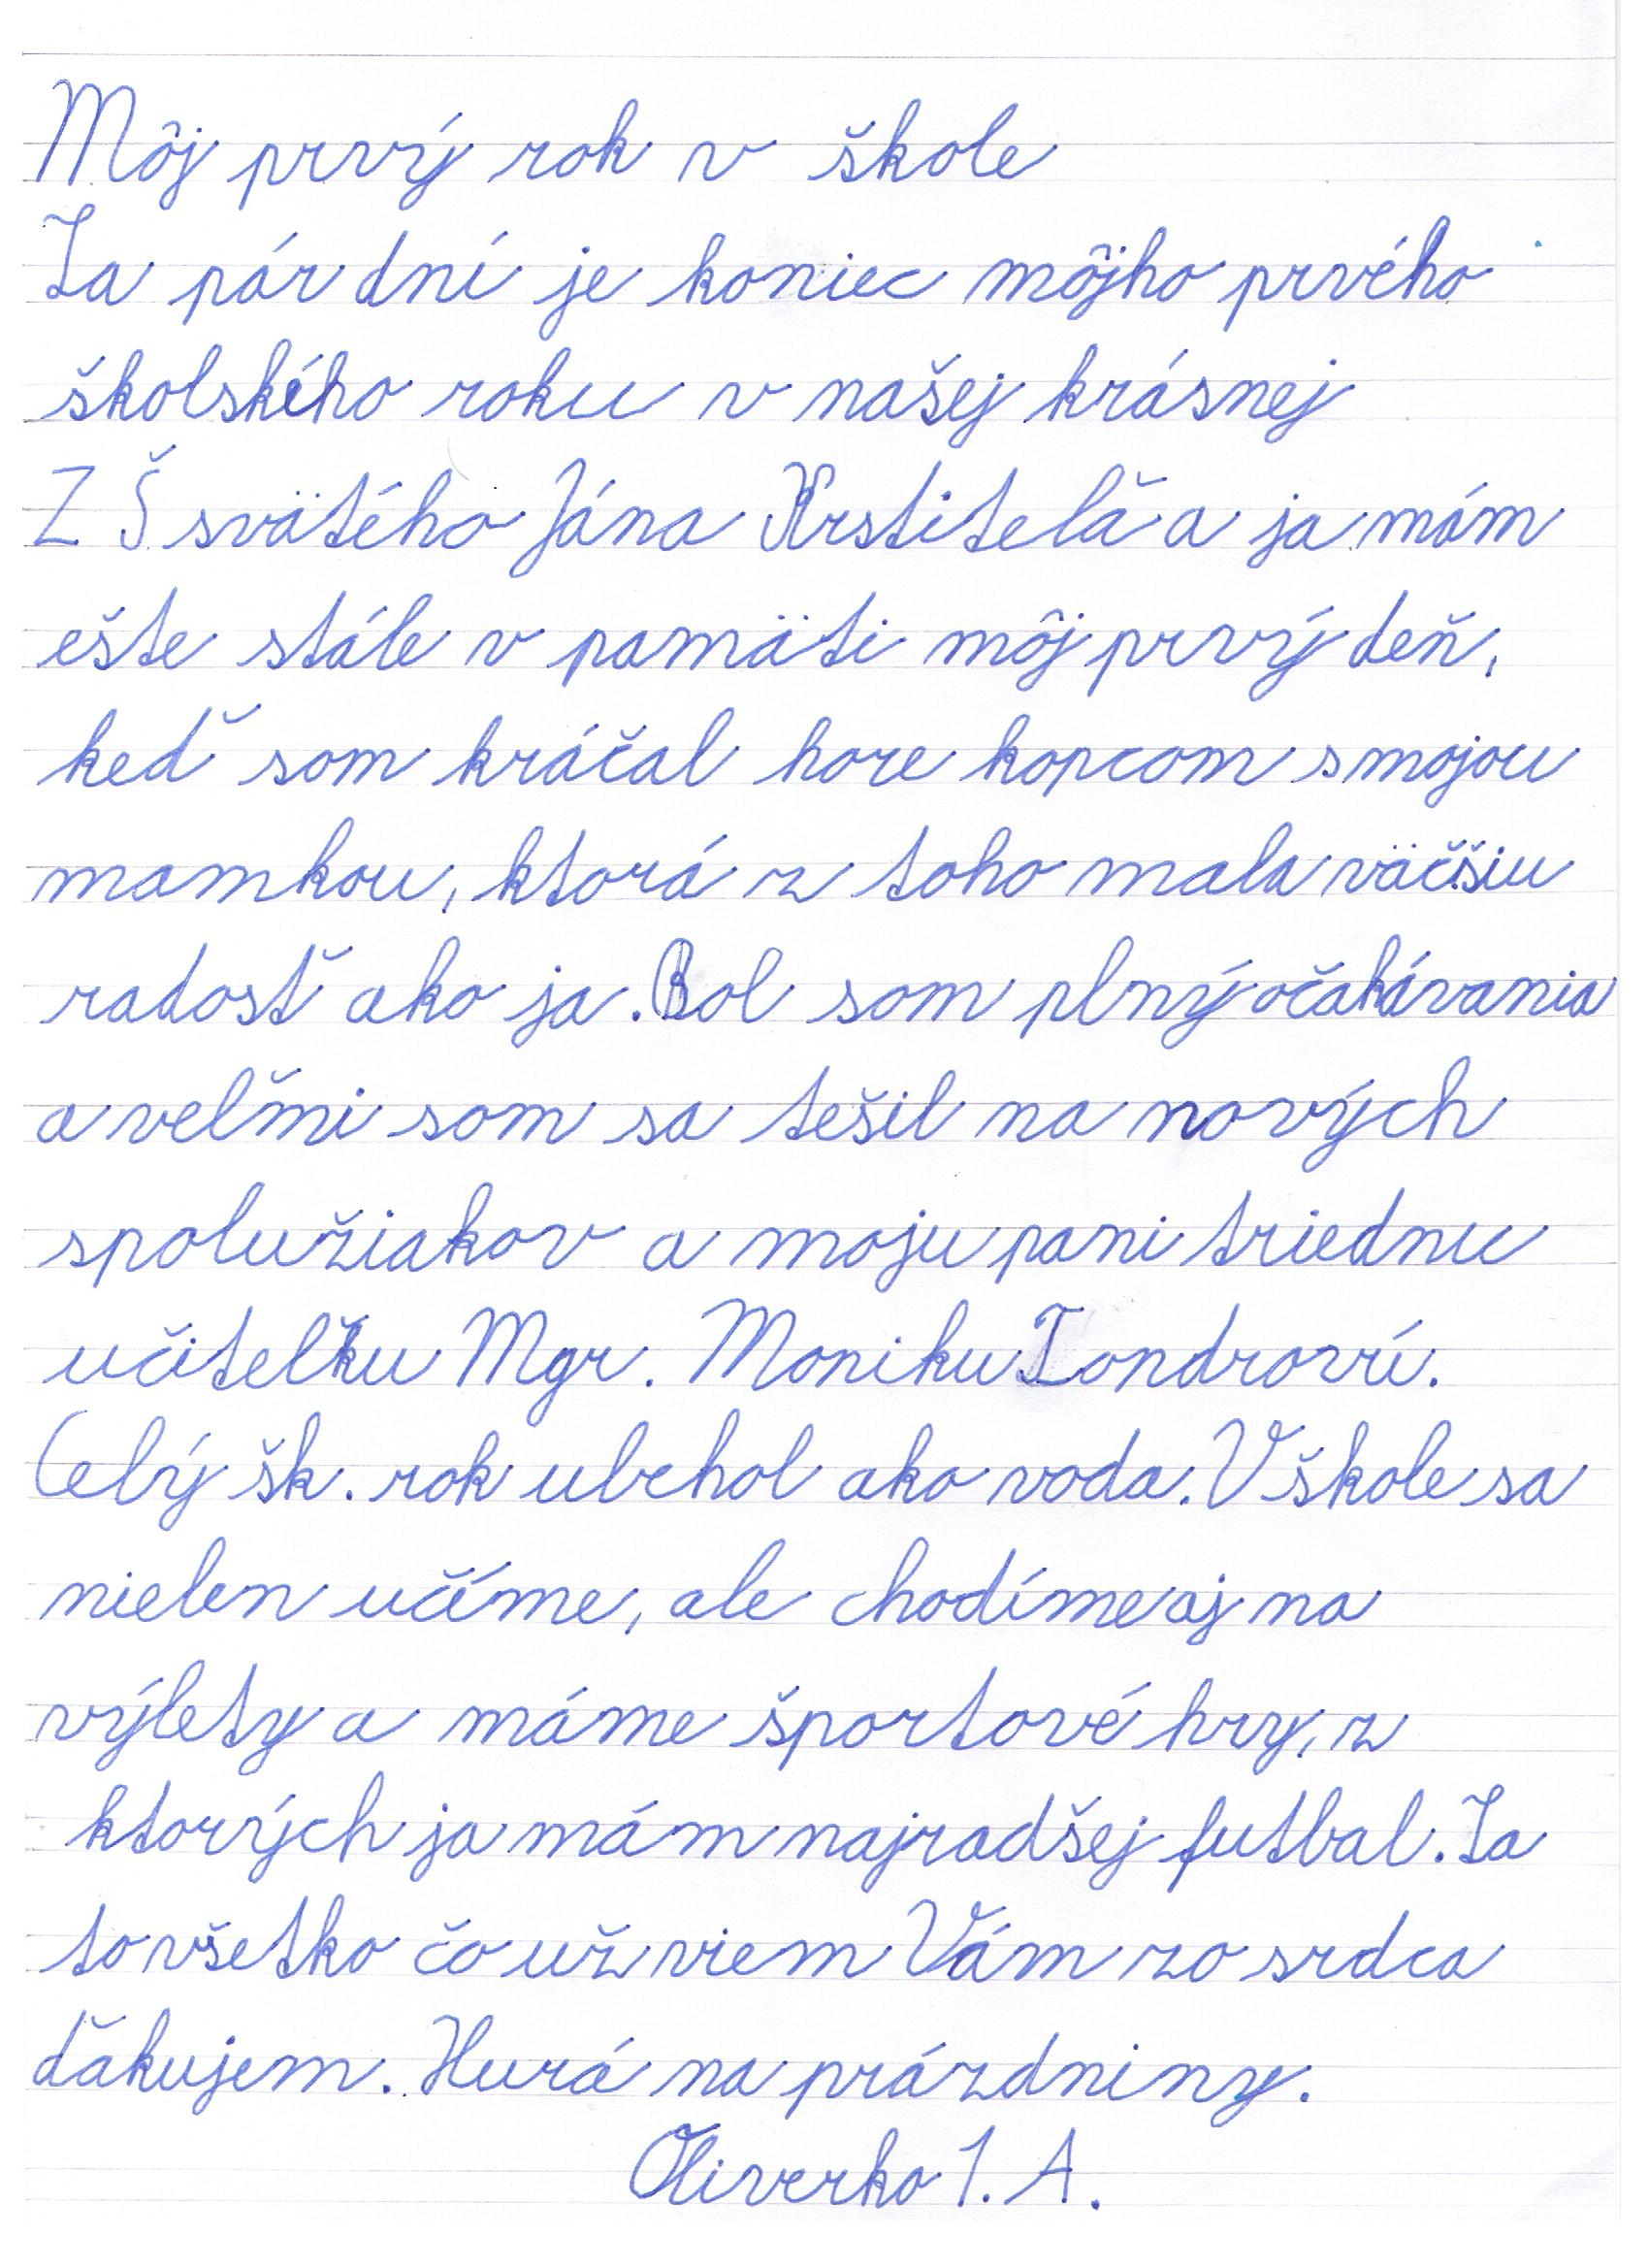 Môj prvý rok v škole
Za pár dní je koniec môjho prvého
školského roku v našej krásnej
ZŠ svätého Jána Krstiteľa a ja mám
ešte stále v pamäti môj prvý deň,
keď som kráčal hore kopcom s mojou
mamkou, ktorá z toho mala väčšiu
radosť ako ja. Bol som plný očakávania
a veľmi som sa tešil na nových
spolužiakov a moju pani triednu
učiteľku Mgr. Moniku
Celý šk. rok ubehol ako voda. V škole sa
nielen učíme, ale chodíme aj na
výlety a máme športové hry, z
ktorých ja mám najradšej futbal. Za
to všetko čo už viem Vám zo srdca
ďakujem. Hurá na prázdniny.
Oliverko 1. A.